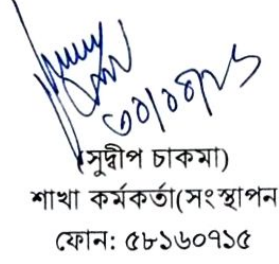 (সুদ্বীপ চাকমা)
শাখা কর্মকর্তা(সংস্থাপন
ফোন: ৫৮১৬০৭১৫